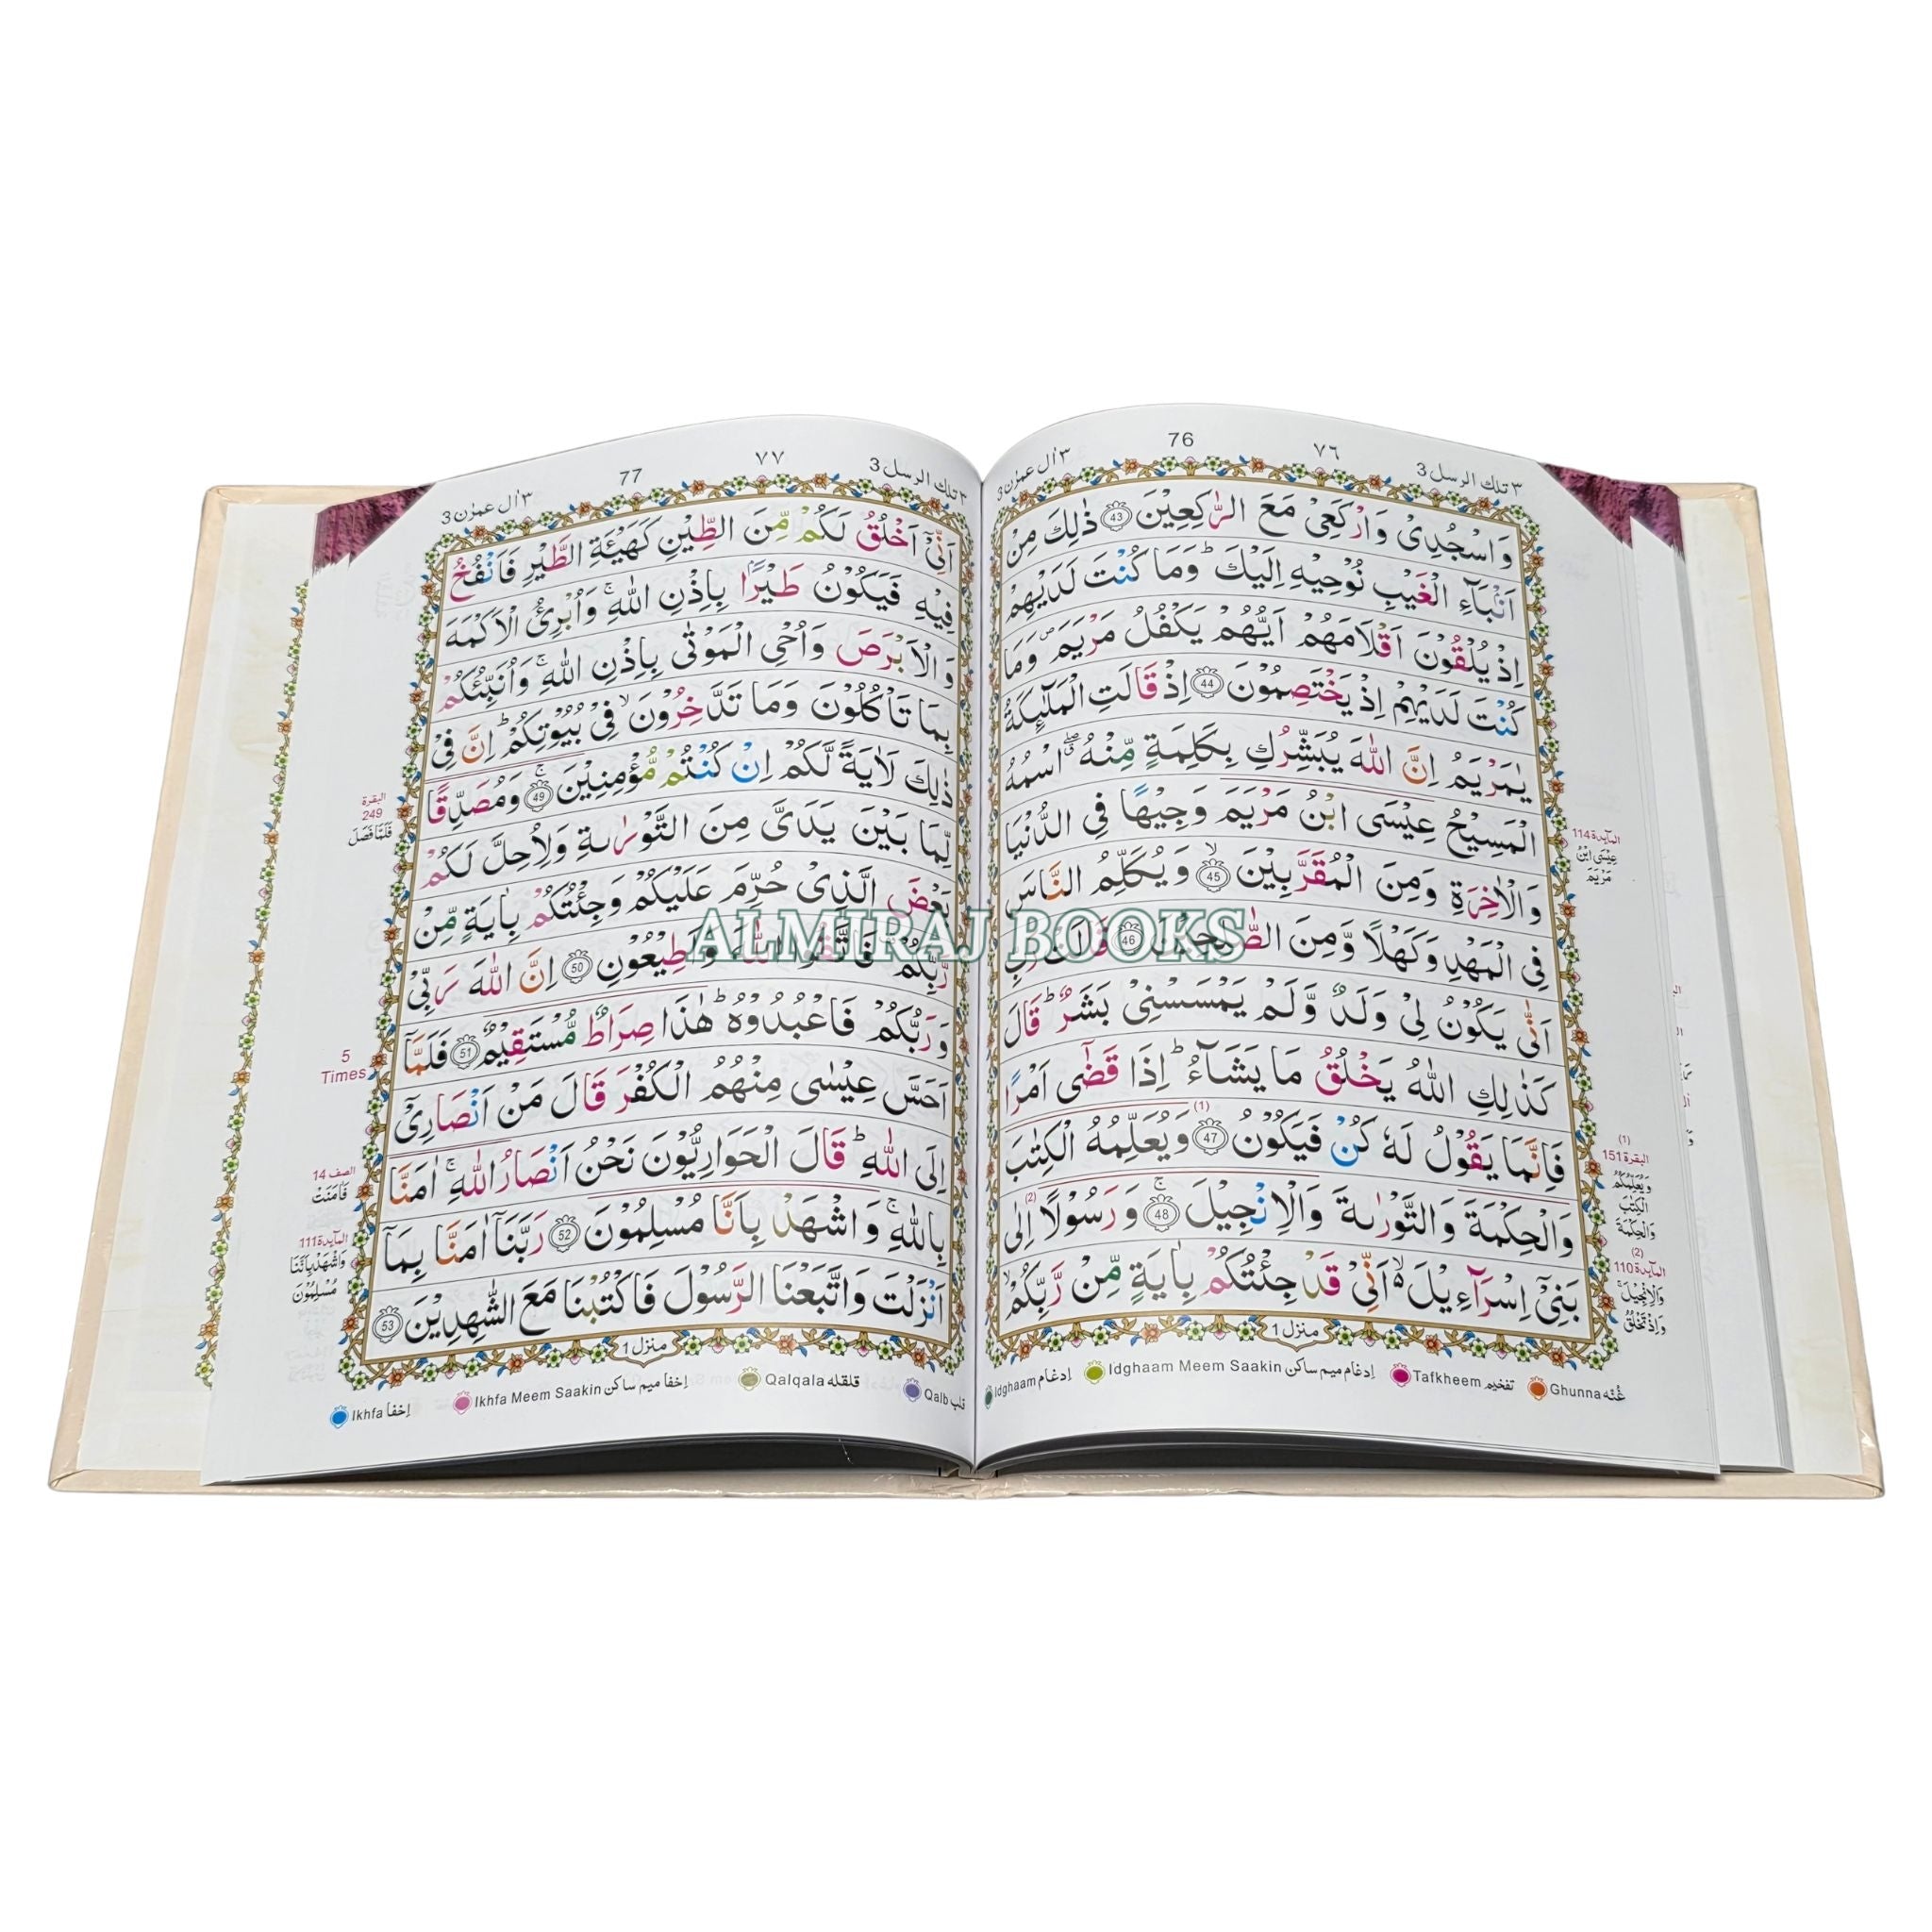 ٣ تلك الرسل 3
٧٦
76
٣ اٰل عمرٰن 3
وَاسْجُدِىْ وَارْكَعِىْ مَعَ الرّٰكِعِيْنَ 43 ذٰلِكَ مِنْ
اَنْۢبَآءِ الْغَيْبِ نُوْحِيْهِ اِلَيْكَ ؕ وَمَا كُنْتَ لَدَيْهِمْ
اِذْ يُلْقُوْنَ اَقْلَامَهُمْ اَيُّهُمْ يَكْفُلُ مَرْيَمَ ۪ وَمَا
كُنْتَ لَدَيْهِمْ اِذْ يَخْتَصِمُوْنَ 44 اِذْ قَالَتِ الْمَلٰٓئِكَةُ
يٰمَرْيَمُ اِنَّ اللّٰهَ يُبَشِّرُكِ بِكَلِمَةٍ مِّنْهُ ۖ اسْمُهُ
الْمَسِيْحُ عِيْسَى ابْنُ مَرْيَمَ وَجِيْهًا فِى الدُّنْيَا
وَالْاٰخِرَةِ وَمِنَ الْمُقَرَّبِيْنَ ۙ 45 وَيُكَلِّمُ النَّاسَ
فِى الْمَهْدِ وَكَهْلًا وَّمِنَ الصّٰلِحِيْنَ 46 قَالَتْ رَبِّ
اَنّٰى يَكُوْنُ لِىْ وَلَدٌ وَّلَمْ يَمْسَسْنِىْ بَشَرٌ ؕ قَالَ
كَذٰلِكِ اللّٰهُ يَخْلُقُ مَا يَشَآءُ ؕ اِذَا قَضٰٓى اَمْرًا
فَاِنَّمَا يَقُوْلُ لَهٗ كُنْ فَيَكُوْنُ 47 (1) وَيُعَلِّمُهُ الْكِتٰبَ
وَالْحِكْمَةَ وَالتَّوْرٰىةَ وَالْاِنْجِيْلَ ۚ 48 وَرَسُوْلًا اِلٰى (2)
بَنِىْٓ اِسْرَآءِيْلَ ۙ۬ اَنِّىْ قَدْ جِئْتُكُمْ بِاٰيَةٍ مِّنْ رَّبِّكُمْ ۙ
منزل 1
المآئدة 114
عِيْسَى ابْنُ
مَرْيَمَ
(1)
البقرة 151
وَيُعَلِّمُكُمُ
الْكِتٰبَ
وَالْحِكْمَةَ
(2)
المآئدة 110
وَالْاِنْجِيْلَ ۚ
وَاِذْ تَخْلُقُ
Idghaam اِدغام
Idghaam Meem Saakin اِدغام میم ساکن
Tafkheem تفخیم
Ghunna غُنّه
٣ تلك الرسل 3
٧٧
77
٣ اٰل عمرٰن 3
اَنِّىْٓ اَخْلُقُ لَكُمْ مِّنَ الطِّيْنِ كَهَيْئَةِ الطَّيْرِ فَاَنْفُخُ
فِيْهِ فَيَكُوْنُ طَيْرًۢا بِاِذْنِ اللّٰهِ ۚ وَاُبْرِئُ الْاَكْمَهَ
وَالْاَبْرَصَ وَاُحْىِ الْمَوْتٰى بِاِذْنِ اللّٰهِ ۚ وَاُنَبِّئُكُمْ
بِمَا تَاْكُلُوْنَ وَمَا تَدَّخِرُوْنَ ۙ فِىْ بُيُوْتِكُمْ ؕ اِنَّ فِىْ
ذٰلِكَ لَاٰيَةً لَّكُمْ اِنْ كُنْتُمْ مُّؤْمِنِيْنَ ۚ 49 وَمُصَدِّقًا
لِّمَا بَيْنَ يَدَىَّ مِنَ التَّوْرٰىةِ وَلِاُحِلَّ لَكُمْ
بَعْضَ الَّذِىْ حُرِّمَ عَلَيْكُمْ وَجِئْتُكُمْ بِاٰيَةٍ مِّنْ
رَّبِّكُمْ فَاتَّقُوا اللّٰهَ وَاَطِيْعُوْنِ 50 اِنَّ اللّٰهَ رَبِّىْ
وَرَبُّكُمْ فَاعْبُدُوْهُ ؕ هٰذَا صِرَاطٌ مُّسْتَقِيْمٌ 51 فَلَمَّآ
اَحَسَّ عِيْسٰى مِنْهُمُ الْكُفْرَ قَالَ مَنْ اَنْصَارِىْٓ
اِلَى اللّٰهِ ؕ قَالَ الْحَوَارِيُّوْنَ نَحْنُ اَنْصَارُ اللّٰهِ ۚ اٰمَنَّا
بِاللّٰهِ ۚ وَاشْهَدْ بِاَنَّا مُسْلِمُوْنَ 52 رَبَّنَآ اٰمَنَّا بِمَآ
اَنْزَلْتَ وَاتَّبَعْنَا الرَّسُوْلَ فَاكْتُبْنَا مَعَ الشّٰهِدِيْنَ 53
منزل 1
البقرة
249
فَلَمَّا فَصَلَ
5
Times
الصف 14
فَاٰمَنَتْ
المآئدة 111
وَاشْهَدْ بِاَنَّنَا
مُسْلِمُوْنَ
Ikhfa اِخفا
Ikhfa Meem Saakin اِخفا میم ساکن
Qalqala قلقله
Qalb قلب
ALMIRAJ BOOKS